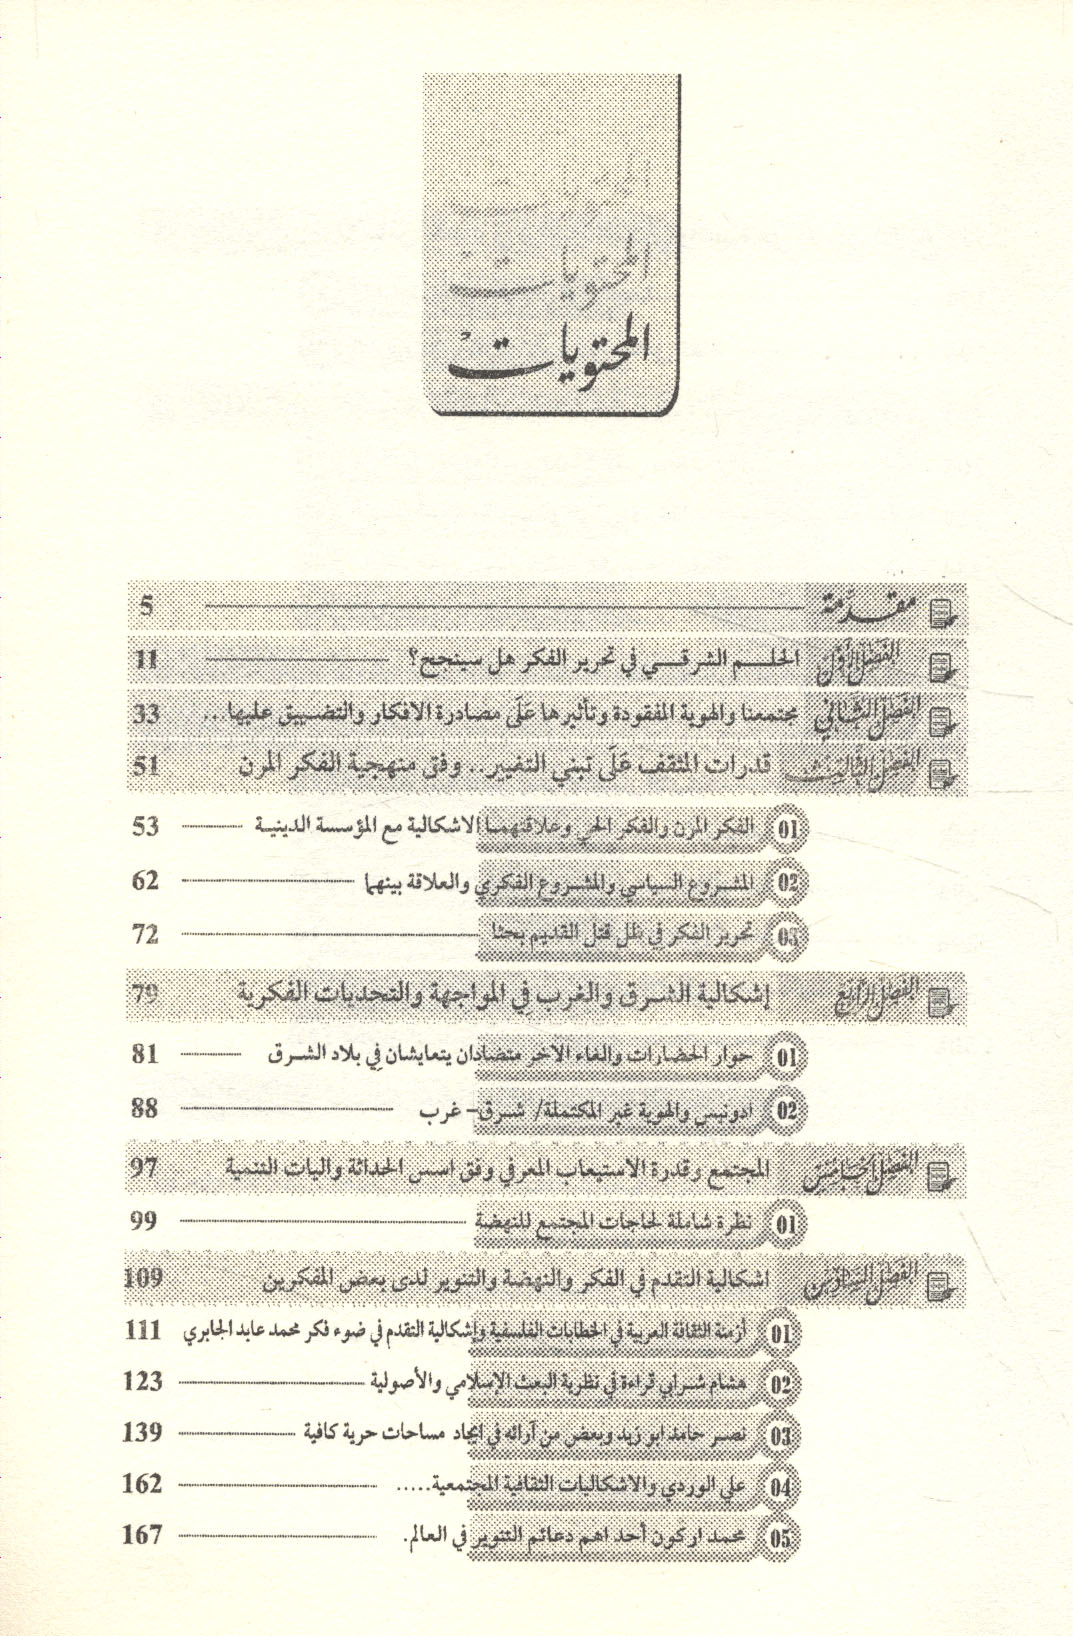 المحتويات
المحتويات
المحتويات
مقدَّمة 5
الفصل الأول الحلم الشرقي في تحرير الفكر هل سينجح؟ 11
الفصل الثاني مجتمعنا والهوية المفقودة وتأثيرها عَلَى مصادرة الافكار والتضييق عليها... 33
الفصل الثالث قدرات المثقف عَلَى تبني التغيير.. وفق منهجية الفكر المرن 51
01 الفكر المرن والفكر الحي وعلاقتهما الاشكالية مع المؤسسة الدينية 53
02 المشروع السياسي والمشروع الفكري والعلاقة بينهما 62
03 تحرير الفكر في ظل قتل القديم بحثا 72
الفصل الرابع إشكالية الشرق والغرب في المواجهة والتحديات الفكرية 79
01 حوار الحضارات والغاء الاخر متضادان يتعايشان في بلاد الشرق 81
02 ادونيس والهوية غير المكتملة/ شرق- غرب 88
الفصل الخامس المجتمع وقدرة الاستيعاب المعرفي وفق اسس الحداثة واليات التنمية 97
01 نظرة شاملة لحاجات المجتمع للنهضة 99
الفصل السادس اشكالية التقدم في الفكر والنهضة والتنوير لدى بعض المفكرين 109
01 أزمنة الثقافة العربية في الخطابات الفلسفية وإشكالية التقدم في ضوء فكر محمد عابد الجابري 111
02 هشام شرابي قراءة في نظرية البعث الإسلامي والأصولية 123
03 نصر حامد ابو زيد وبعض من آرائه في ايجاد مساحات حرية كافية 139
04 علي الوردي والاشكاليات الثقافية المجتمعية..... 162
05 محمد اركون أحد اهم دعائم التنوير في العالم. 167